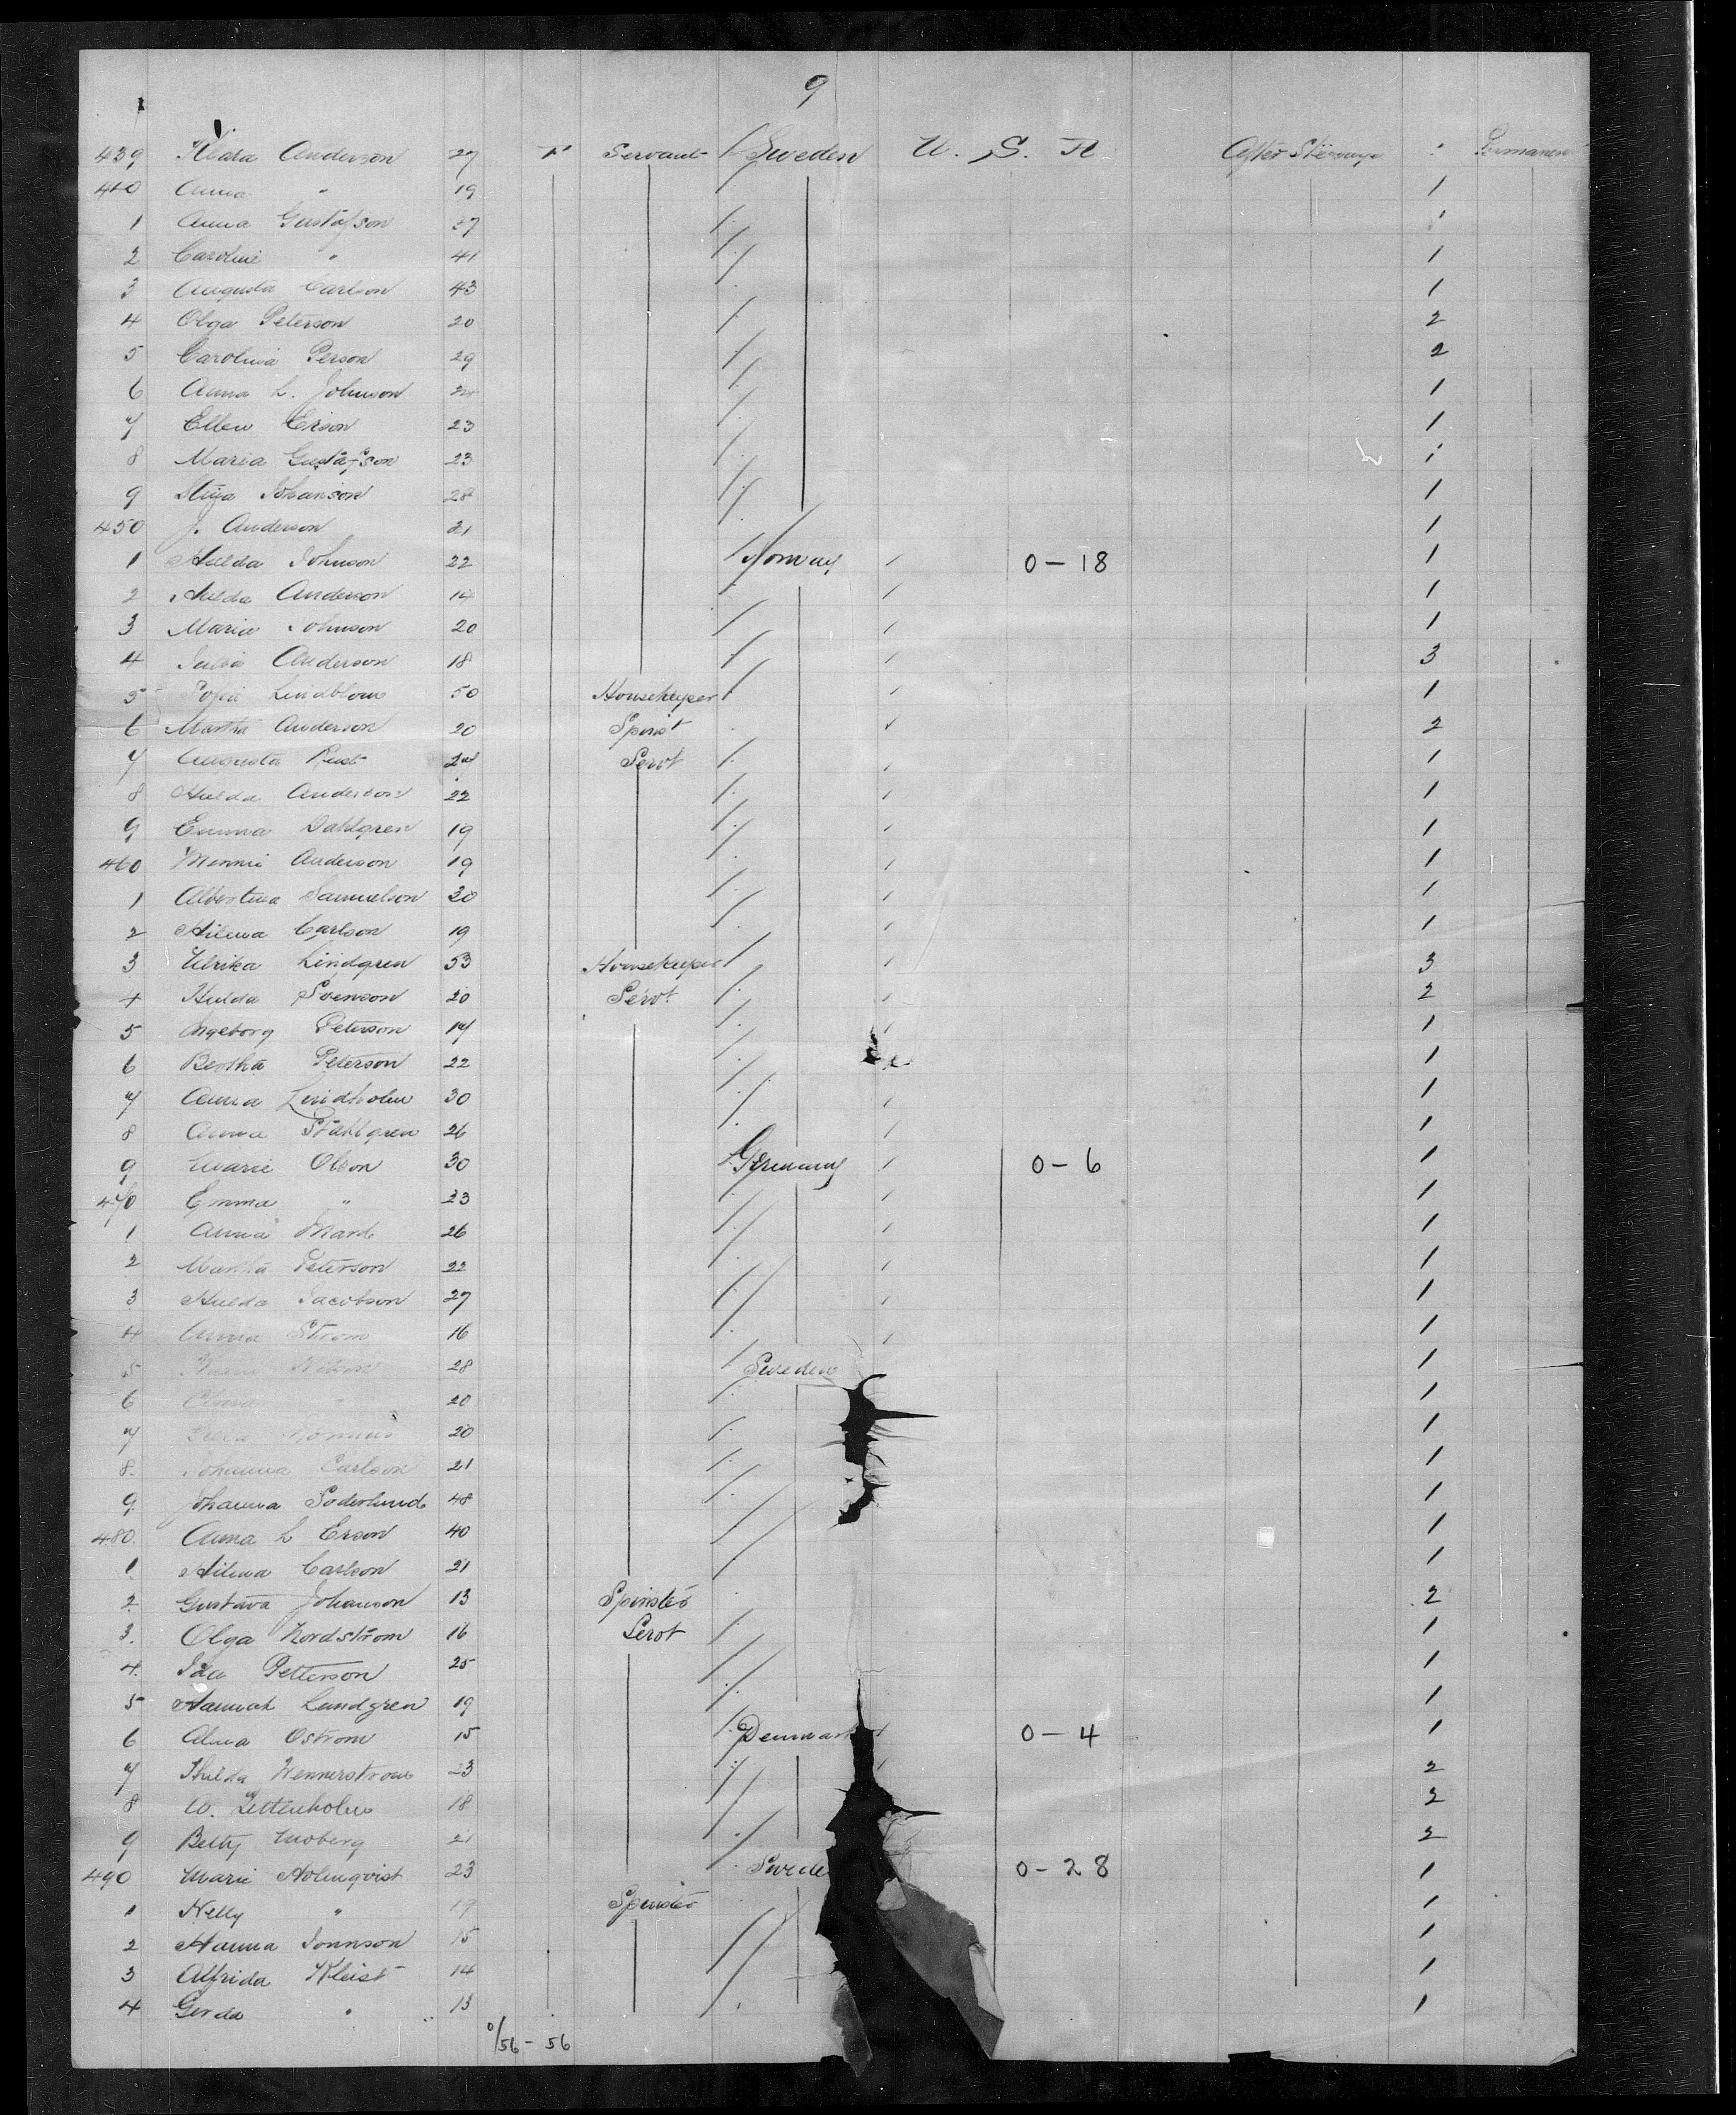 9
439 Klara Anderson 27 F Servant / Sweden U. S. A After Steerage 1 Permanen
440 Anna " 19 / 1
1 Anna Gustafson 27 / 1
2 Caroline " 41 / 1
3 Augusta Carlson 43 1
4 Olga Peterson 20 / 2
5 Carolina Person 29 / 2
6 Anna L. Johnson / 1
7 Ellen Erson 23 / 1
8 Maria Gustafson 23 / 1
9 Johanson 28 / 1
450 J. Anderson 21 / 1
1 Hulda Johnson 22 / Norway / 0-18 1
2 Hulda Anderson 14 / 1
3 Maria Johnson 20 / / 1
4 Julia Anderson 18 / / 3
5 Sofia Lindblom 50 Housekeeper / / 1
6 Martha Anderson 20 Spinst / 2
7 Augusta Rust 24 Servt / / 1
8 Hulda Anderson 22 / / 1
9 Emma Dahlgren 19 / / 1
460 Minnie Anderson 19 / / 1
1 Albertina Samuelson 30 / / 1
2 Hilma Carlson 19 / / 1
3 Ulrika Lindgren 53 Housekeeper / / 3
4 Hulda Svenson 20 Servt / / 2
5 Ingeborg Peterson 17 / / 1
6 Bertha Peterson 22 / / 1
7 Anna Lindholm 30 / / 1
8 Anna Stahlgren 26 / / 1
9 Marie Olson 30 / Germany / 0-6 1
470 Emma " 23 / / 1
1 Anna Mard 26 / / 1
2 Martha Peterson 22 / / 1
3 Hulda Jacobson 27 / / 1
4 Anna Strom 16 / / 1
5 Nelson 28 / Sweden 1
6 " 20 / 1
7 20 / 1
8. Johanna Carlson 21 / 1
9. Johanna Soderlund 48 / 1
480. Anna L Erson 40 / 1
1. Hilma Carlson 21 / 1
2. Gustava Johanson 13 Spinster 2
3. Olga Nordstrom 16 Servt / 1
4. Ida Petterson 25 / 1
5 Hannah Lundgren 19 / 1
6 Alma Ostrom 15 / Denmark / 0-4 1
7 Hulda Wennerstrom 23 / / 2
8 W. Zettenholm 18 / 2
9 Betty Moberg 21 / 2
490 Marie Holmqvist 23 Swede 0-28 1
1 Nelly " 17 Spinster 1
2 Hanna Jonnson 15 / 1
3 Alfrida Kleist 14 / 1
4 Gerda " 13 / 1
0/56-56